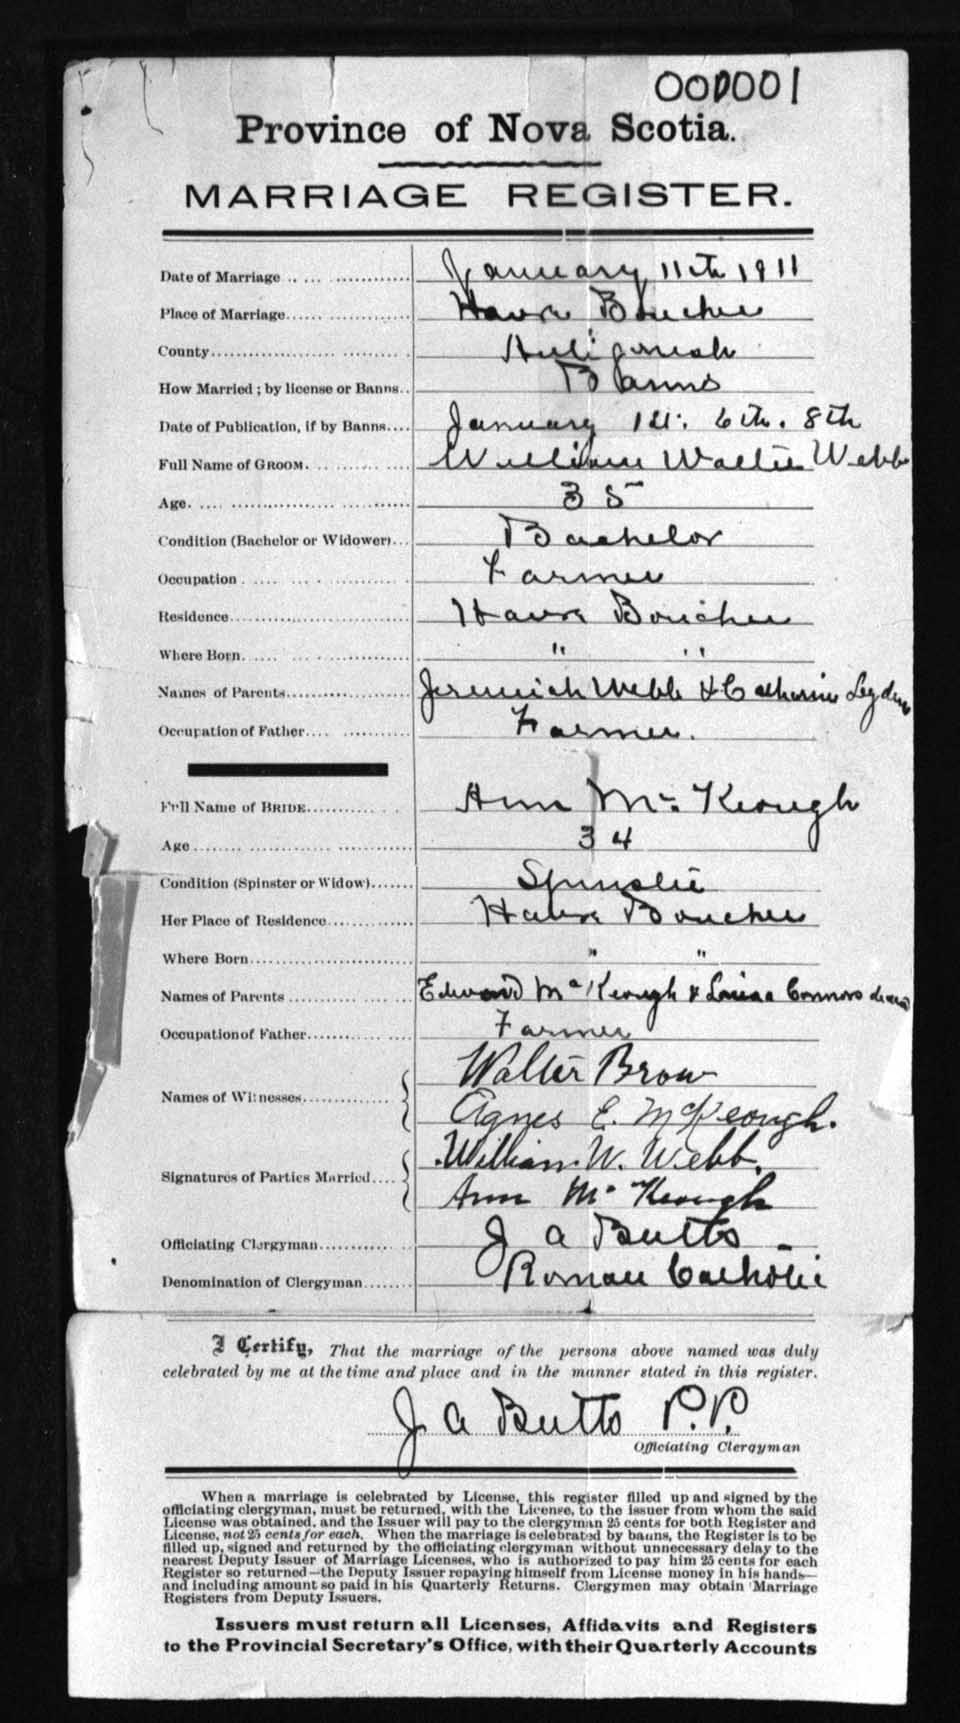 000001
Province of Nova Scotia.
MARRIAGE REGISTER.
Date of Marriage January 11th 1911
Place of Marriage Havre Boucher
County Antigonish
How Married; by license or Banns Banns
Date of Publication, if by Banns January 1st. 6th. 8th
Full Name of GROOM William Walter Webb
Age 35
Condition (Bachelor or Widower) Bachelor
Occupation Farmer
Residence Havre Boucher
Where Born " "
Names of Parents Jeremiah Webb & Catherine
Occupation of Father Farmer.
Full Name of BRIDE Ann Mc Keough
Age 34
Condition (Spinster or Widow) Spinster
Her Place of Residence Havre Boucher
Where Born " "
Names of Parents Edward Mc Keough & Louisa Connors
Occupation of Father Farmer
Names of Witnesses Walter Brow
Agnes E. McKeough.
Signatures of Parties Married William W. Webb.
Ann Mc Keough
Officiating Clergyman J A Butts
Denomination of Clergyman Roman Catholic
I Certify, That the marriage of the persons above named was duly
celebrated by me at the time and place and in the manner stated in this register.
J A Butts P.P.
Officiating Clergyman
When a marriage is celebrated by License, this register filled up and signed by the
officiating clergyman, must be returned, with the License, to the issuer from whom the said
License was obtained, and the Issuer will pay to the clergyman 25 cents for both Register and
License, not 25 cents for each. When the marriage is celebrated by banns, the Register is to be
filled up, signed and returned by the officiating clergyman without unnecessary delay to the
nearest Deputy Issuer of Marriage Licenses, who is authorized to pay him 25 cents for each
Register so returned—the Deputy Issuer repaying himself from License money in his hands—
and including amount so paid in his Quarterly Returns. Clergymen may obtain Marriage
Registers from Deputy Issuers.
Issuers must return all Licenses, Affidavits and Registers
to the Provincial Secretary's Office, with their Quarterly Accounts